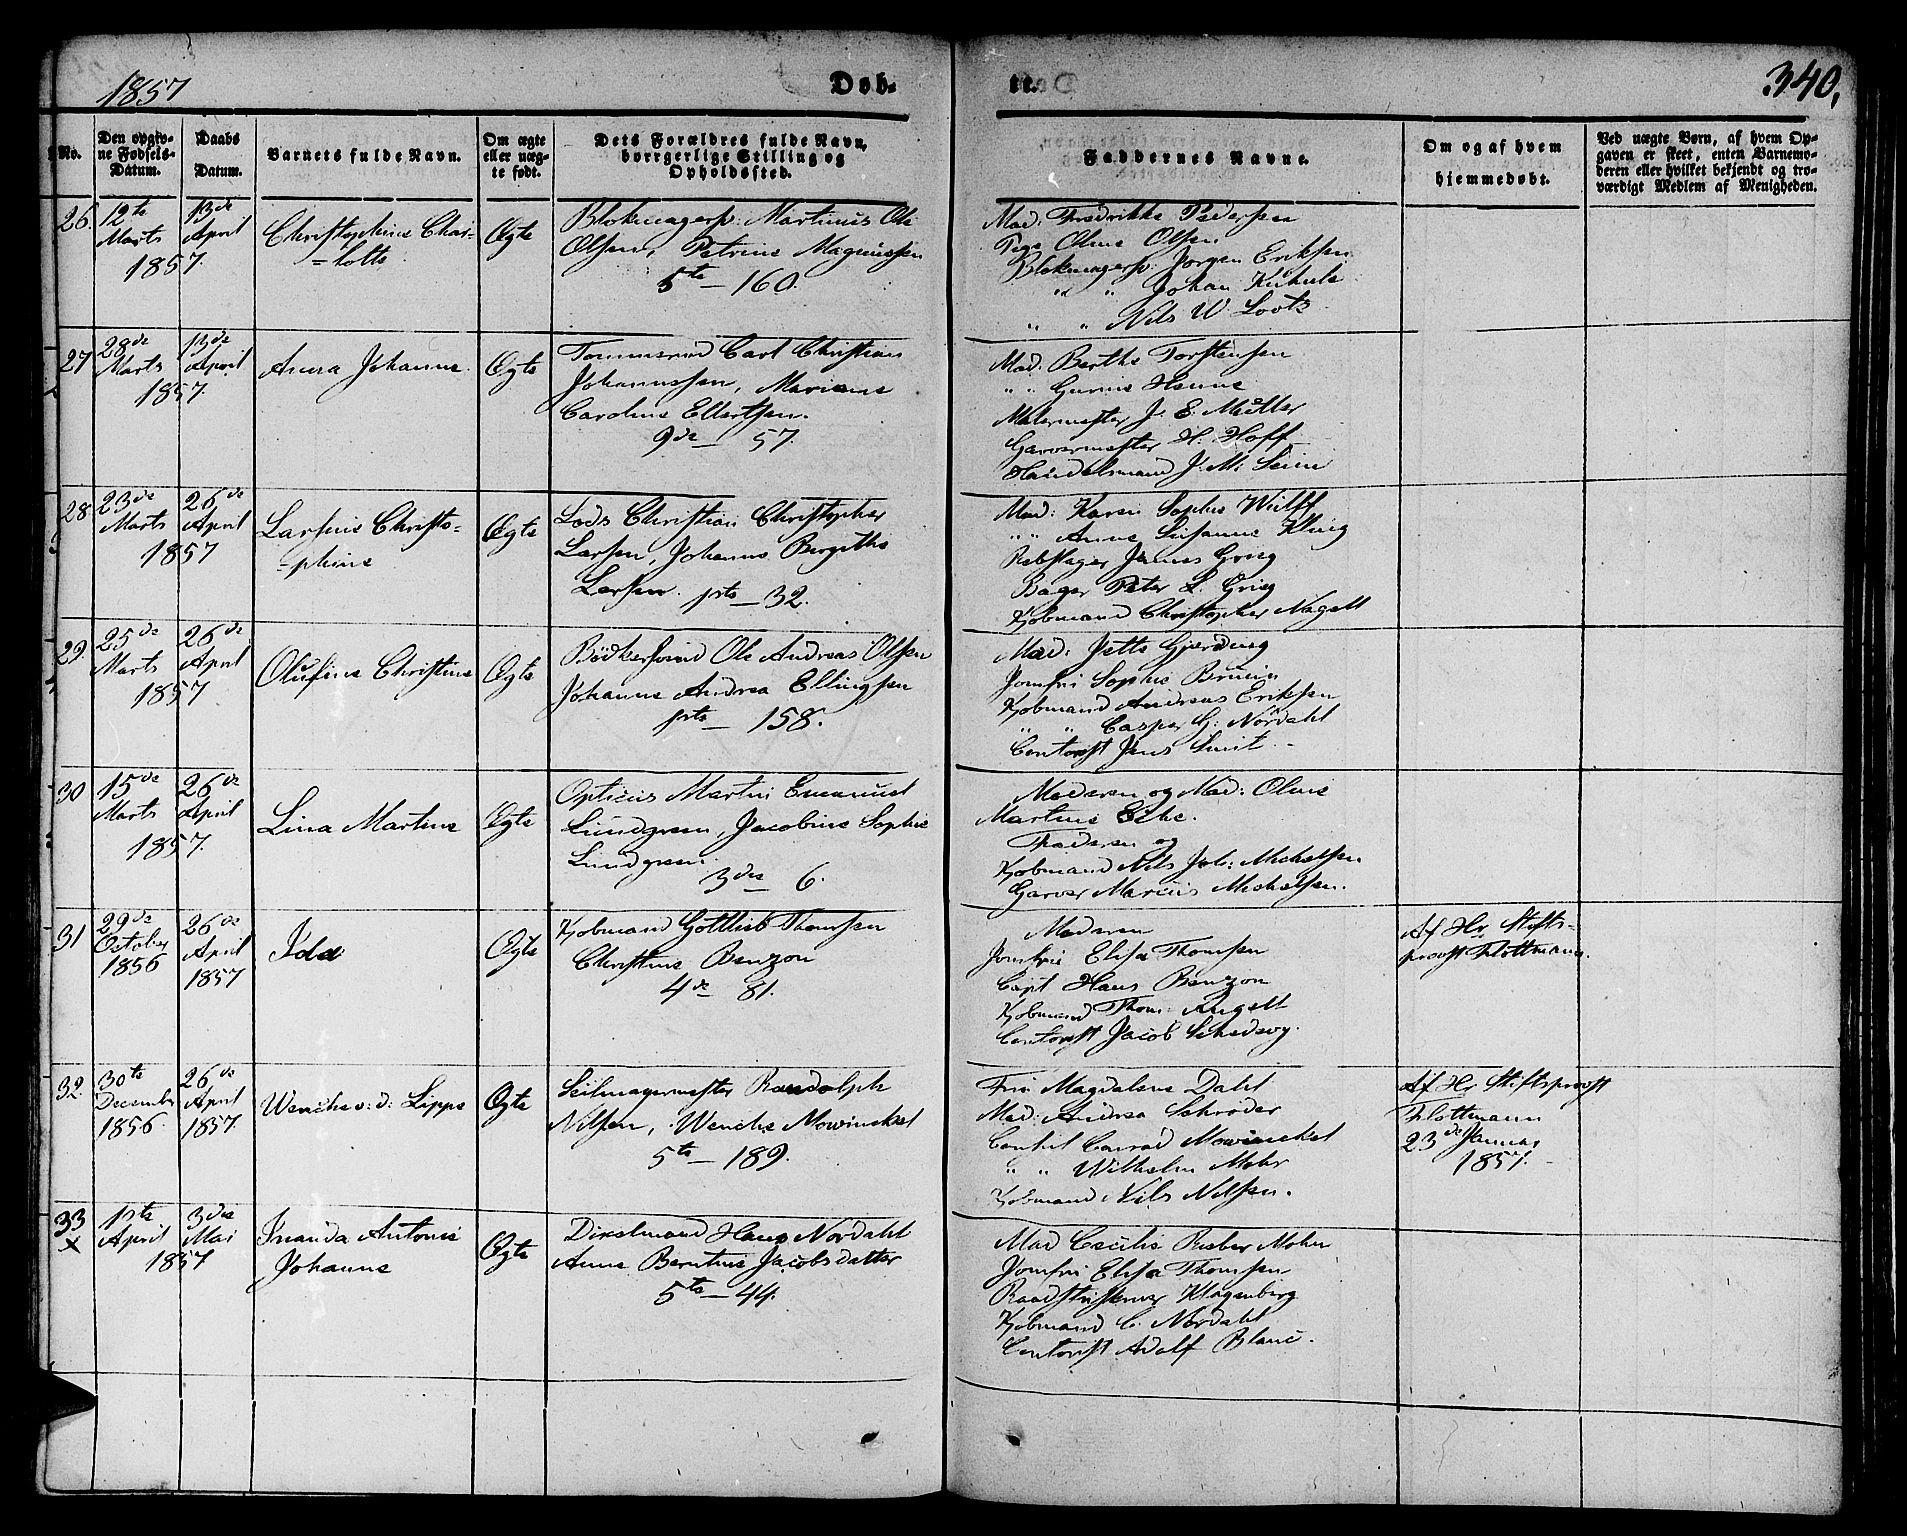 1857
Døb-
te.
340.
No.
Den opgiv-
ne Fødsels-
Datum.
Daabs
Datum.
Barnets fulde Navn.
Om ægte
eller uæg-
te født.
Dets Forældres fulde Navn,
borgerlige Stilling og
Opholdssted.
Faddernes Navne.
Om og af hvem
hjemmedøbt.
Ved uægte Børn, af hvem Op-
gaven er skeet, enten Barnemo-
deren eller hvilket bekjendt og tro-
værdigt Medlem af Menigheden.
26.
12te
Marts
1857.
13de
April
Christophine Char-
=lotte
Ægte
Blokmagersv: Martinus Ole
Olsen, Petrine Magnussen
5te — 160.
Mad: Fredrikke Pedersen
Pige Oline Olsen
Blokmagersv. Jørgen Eriksen
" " Johan
" " Nils W. Loots
27
28de
Marts
1857.
13de
April
Anna Johanne
Ægte
Tømmermd Carl Christian
Johannessen, Mariane
Caroline Ellertsen.
9de — 57.
Mad. Berthe Torstensen
" " Gurine Henne
Malermester J. E. Müller
Garvermester H. Hoff
Handelsmand J. M. Seim
28
23de
Marts
1857
26de
April
Larsine Christo-
=phine
Ægte
Lods Christian Christopher
Larsen, Johanne Bergithe
Larsen. 1ste — 32.
Mad: Karen Sophie Wulff
" " Anne Susanne Kling
Rebslager James Grieg
Bager Peter L. Grieg
Kjøbmand Christopher Nagell
29.
25de
Marts
1857
26de
April
Olufine Christine
Ægte
Bødkersvend Ole Andreas Olsen
Johanne Andrea Ellingsen
1ste — 158.
Mad: Jette Gjerding
Jomfru Sophie Bruun
Kjøbmand Andreas Eriksen
" " Casper G: Nordahl
Contorist Jens Smit.
30
15de
Marts
1857.
26de
April
Lina Martine
Ægte
Opticus Martin Emanuel
Lundgreen, Jacobine Sophie
Lundgreen.
3die 6.
Moderen og Mad: Oline
Martine
Faderen og
Kjøbmand Nils Joh: Michelsen
Garver Marcus Michelsen.
31
29de
October
1856
26de
April
1857
Ida
Ægte
Kjøbmand Gottlieb Thomsen
Christine Benzon
4de 81.
Moderen
Jomfru Elisa Thomsen
Capt Hans Benzon
Kjøbmand Thom: Angell
Contorist Jacob
Af Hr Stifts-
provst Flottmann.
32.
30te
December
1856.
26de
April
1857.
Wenche v: d: Lippe
Ægte
Seilmagermester Randolph
Nilsen, Wenche Mowinckel
5te — 189.
Fru Magdalene Dahl
Mad: Andrea Schrøder
Conrad Mowinckel
" " Wilhelm Mohr
Kjøbmand Nils Nilsen.
Af Hr Stiftsprovst
Flottmann
23de Januar
1857.
33
x
1ste
April
1857
3die
Mai
Antonie
Johanne
Ægte
Hans Nordahl
Anne Berntine Jacobsdatter
5te — 44.
Mad Cecilie Mohn
Jomfru Elisa Thomsen
Raadstuskriver Klagenberg
Kjøbmand C. Nordahl
Contorist Adolf Blanc.